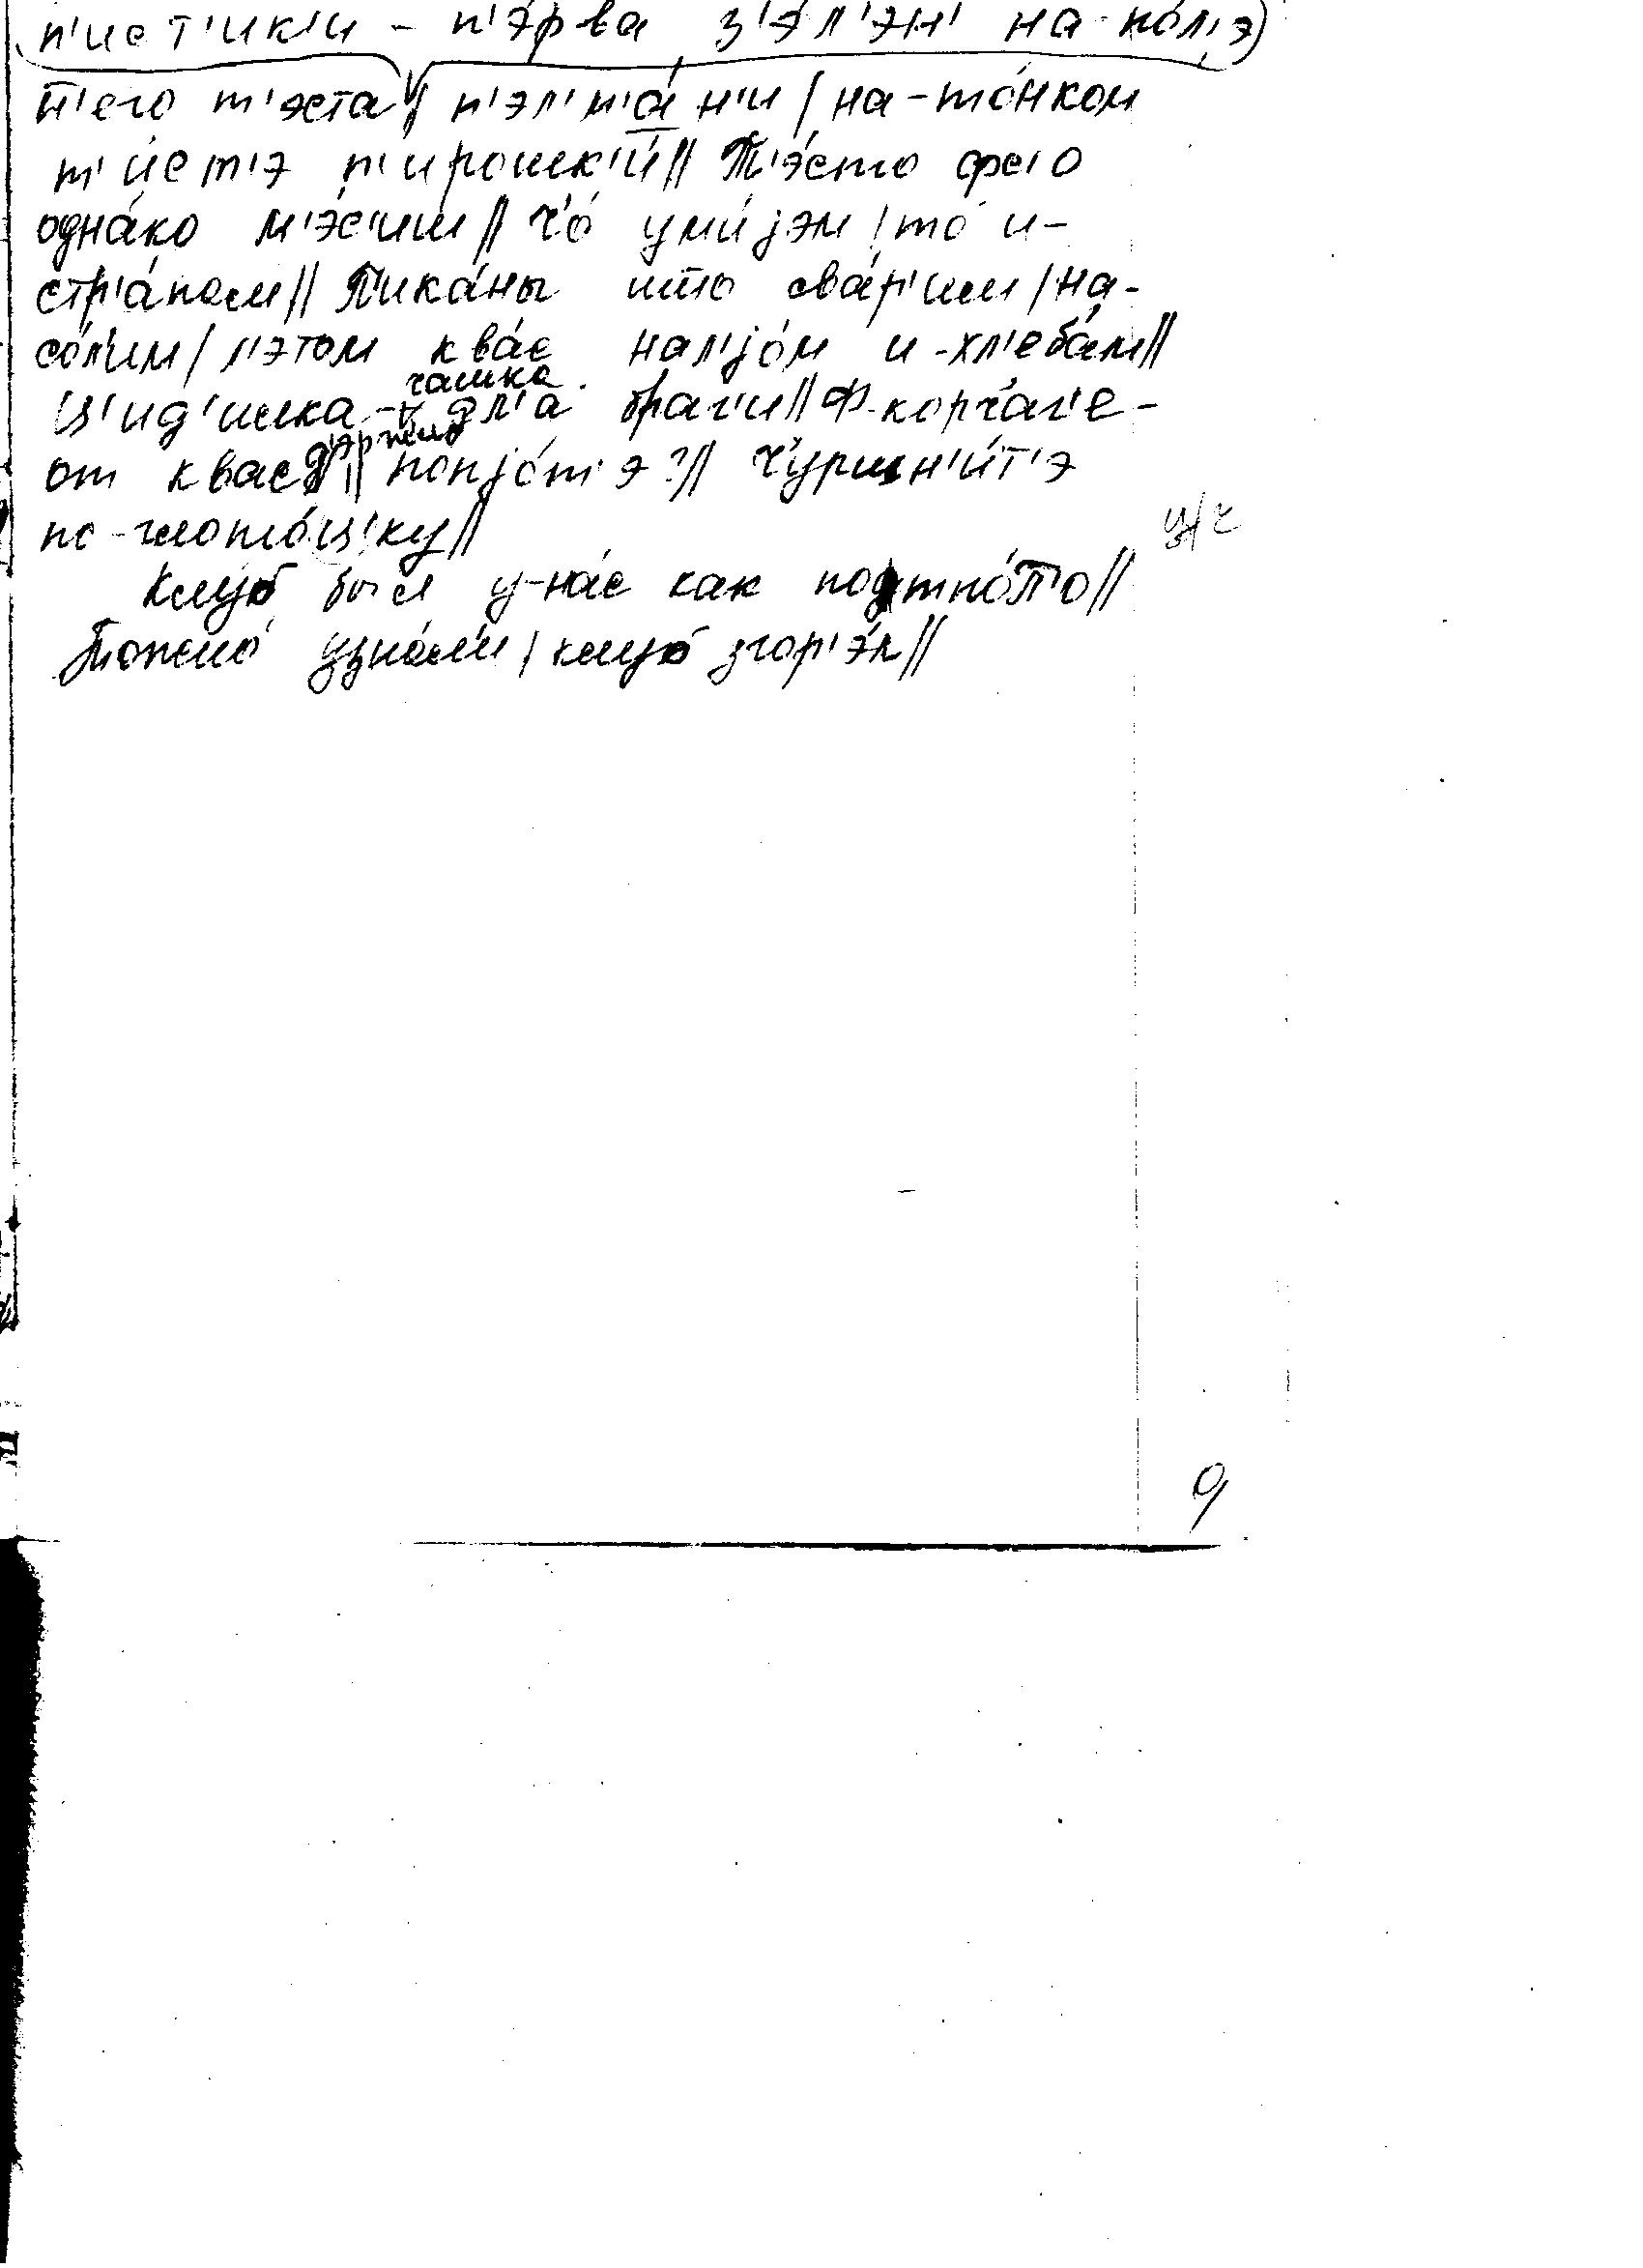 п'ист'ик'и – п'э́рва з'э́л'эн' на-по́л'э)
н'его т'эста // п'эл'н'а́н'и / на-то́нком
т'и́ст'э п'ирошк'и́ // Т'э́сто фс'о
одна́ко м'э́с'им // ч'о́ ум'и́jэм / то́ и-
стр'а́пом // Пика́ны што сва́р'им / на-
со́л'им / п'этом ква́с нал'jо́м и-хл'еба́м //
ц'ид'ишка – чашка дл'а браг'и // Ф-корч'а́г'е-
от квас д'эржно // попjо́т'э? // ч'урпн'и́т'э
по-глото́ц'ку //
ц'/ч
клуб был у-на́с как поутпо́л'о //
узнал'и / клуб згор'э́л //
9